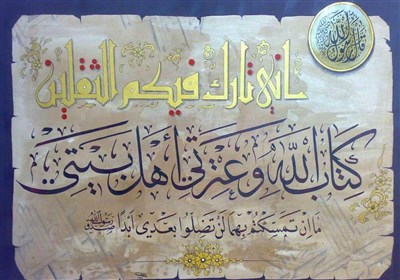 قال رسول الله
اني تارك فيكم الثقلين
كتاب الله وعترتي أهل بيتي
ما ان تمسكتم بهما لن تضلوا بعدي أبدا